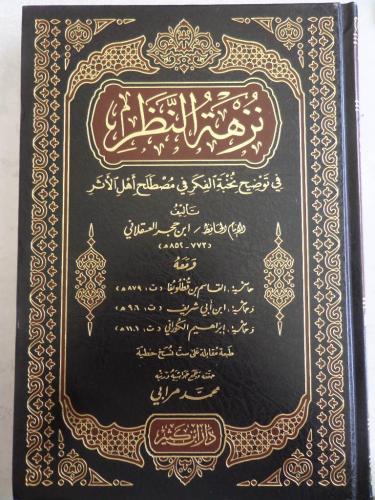 نُزْهَةُ النَّظَرِ
في تَوضِيحِ نُخْبَةِ الفِكَرِ في مُصْطَلَحِ أَهْلِ الأَثَرِ
تأليف
الإمام الحافظ / ابن حجر العسقلاني
(٧٧٣ - ٨٥٢ هـ)
ومعه
حاشية: القاسم بن قطلوبغا (ت، ٨٧٩ هـ)
وحاشية: ابن أبي شريف (ت، ٩٠٦ هـ)
وحاشية: إبراهيم الكوراني (ت، ١١٠١ هـ)
طبعة مقابلة على ست نسخ خطية
محمد مرابي
دار ابن كثير